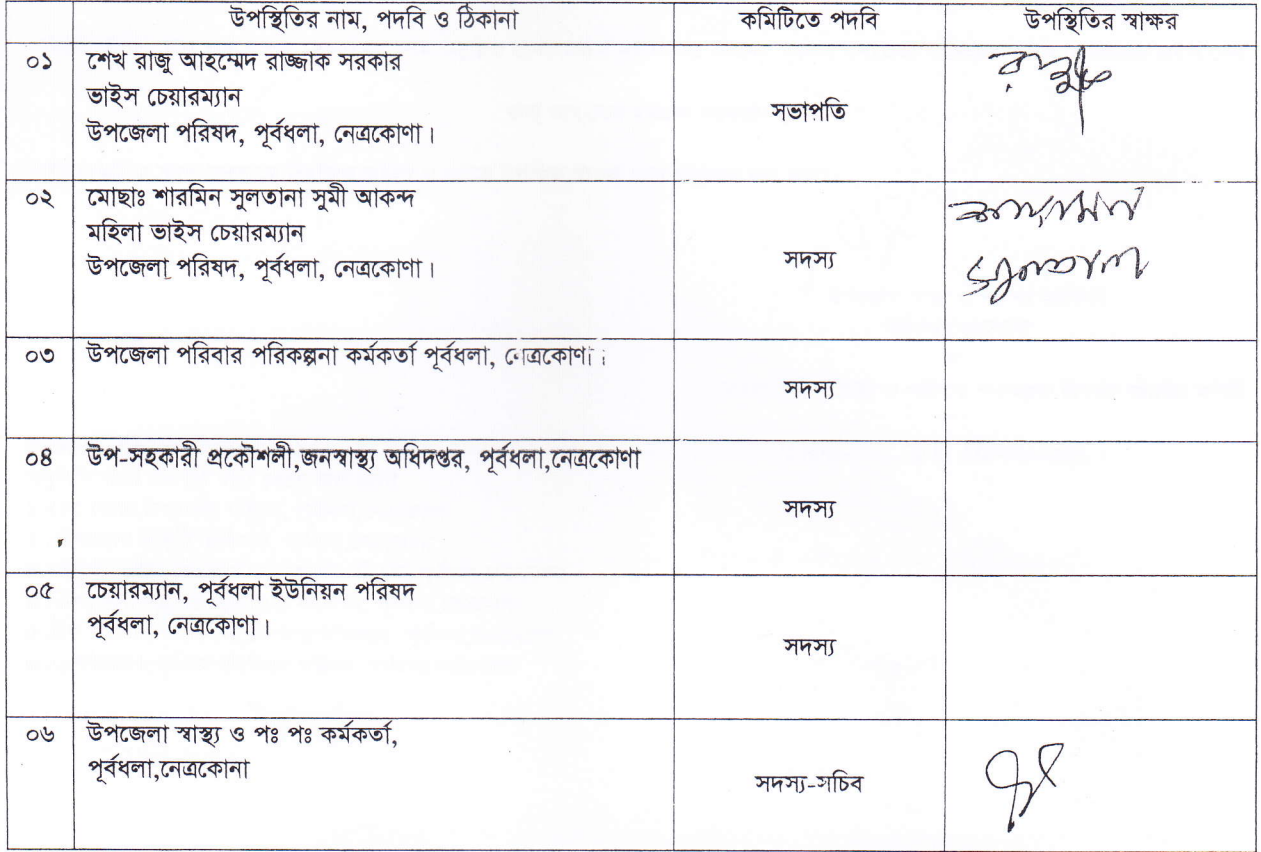 উপস্থিতির নাম, পদবি ও ঠিকানা কমিটিতে পদবি উপস্থিতির স্বাক্ষর
০১ শেখ রাজু আহম্মেদ রাজ্জাক সরকার
ভাইস চেয়ারম্যান
সভাপতি
উপজেলা পরিষদ, পূর্বধলা, নেত্রকোণা।
০২ মোছাঃ শারমিন সুলতানা সুমী আকন্দ
মহিলা ভাইস চেয়ারম্যান
উপজেলা পরিষদ, পূর্বধলা, নেত্রকোণা। সদস্য
সুলতানা
০৩ উপজেলা পরিবার পরিকল্পনা কর্মকর্তা পূর্বধলা, নেত্রকোণা।
সদস্য
০৪ উপ-সহকারী প্রকৌশলী,জনস্বাস্থ্য অধিদপ্তর, পূর্বধলা,নেত্রকোণা
সদস্য
০৫ চেয়ারম্যান, পূর্বধলা ইউনিয়ন পরিষদ
পূর্বধলা, নেত্রকোণা।
সদস্য
০৬ উপজেলা স্বাস্থ্য ও পঃ পঃ কর্মকর্তা,
পূর্বধলা,নেত্রকোনা
সদস্য-সচিব